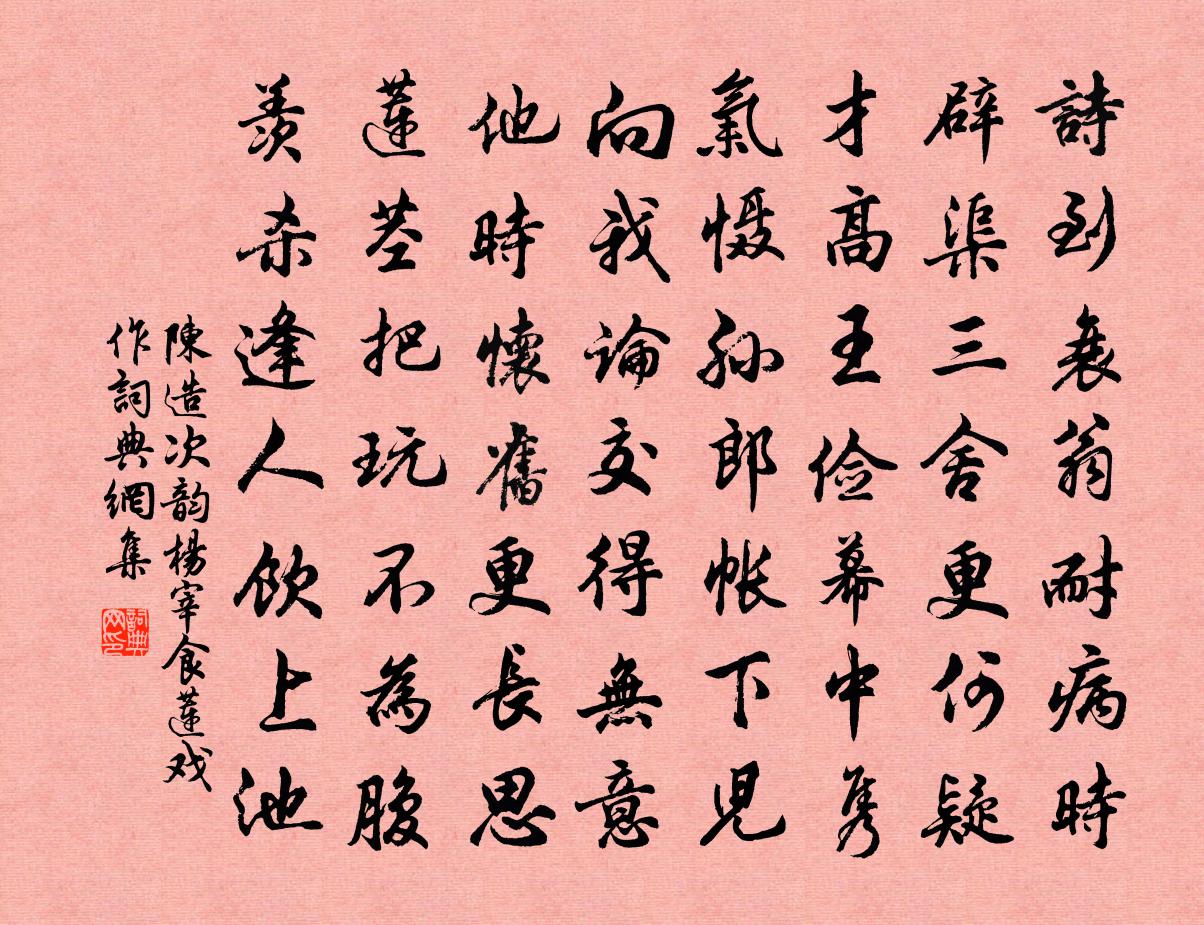 詩到衰翁耐病時
辟渠三舍更何疑
才高王俭幕中隽
氣慑孙郎帐下兒
向我論交得無意
他時懷舊更長思
蓮茎把玩不為腹
羨杀逢人飲上池
陳造次韵楊宰食蓮戏
作詞典網集
詞典网印